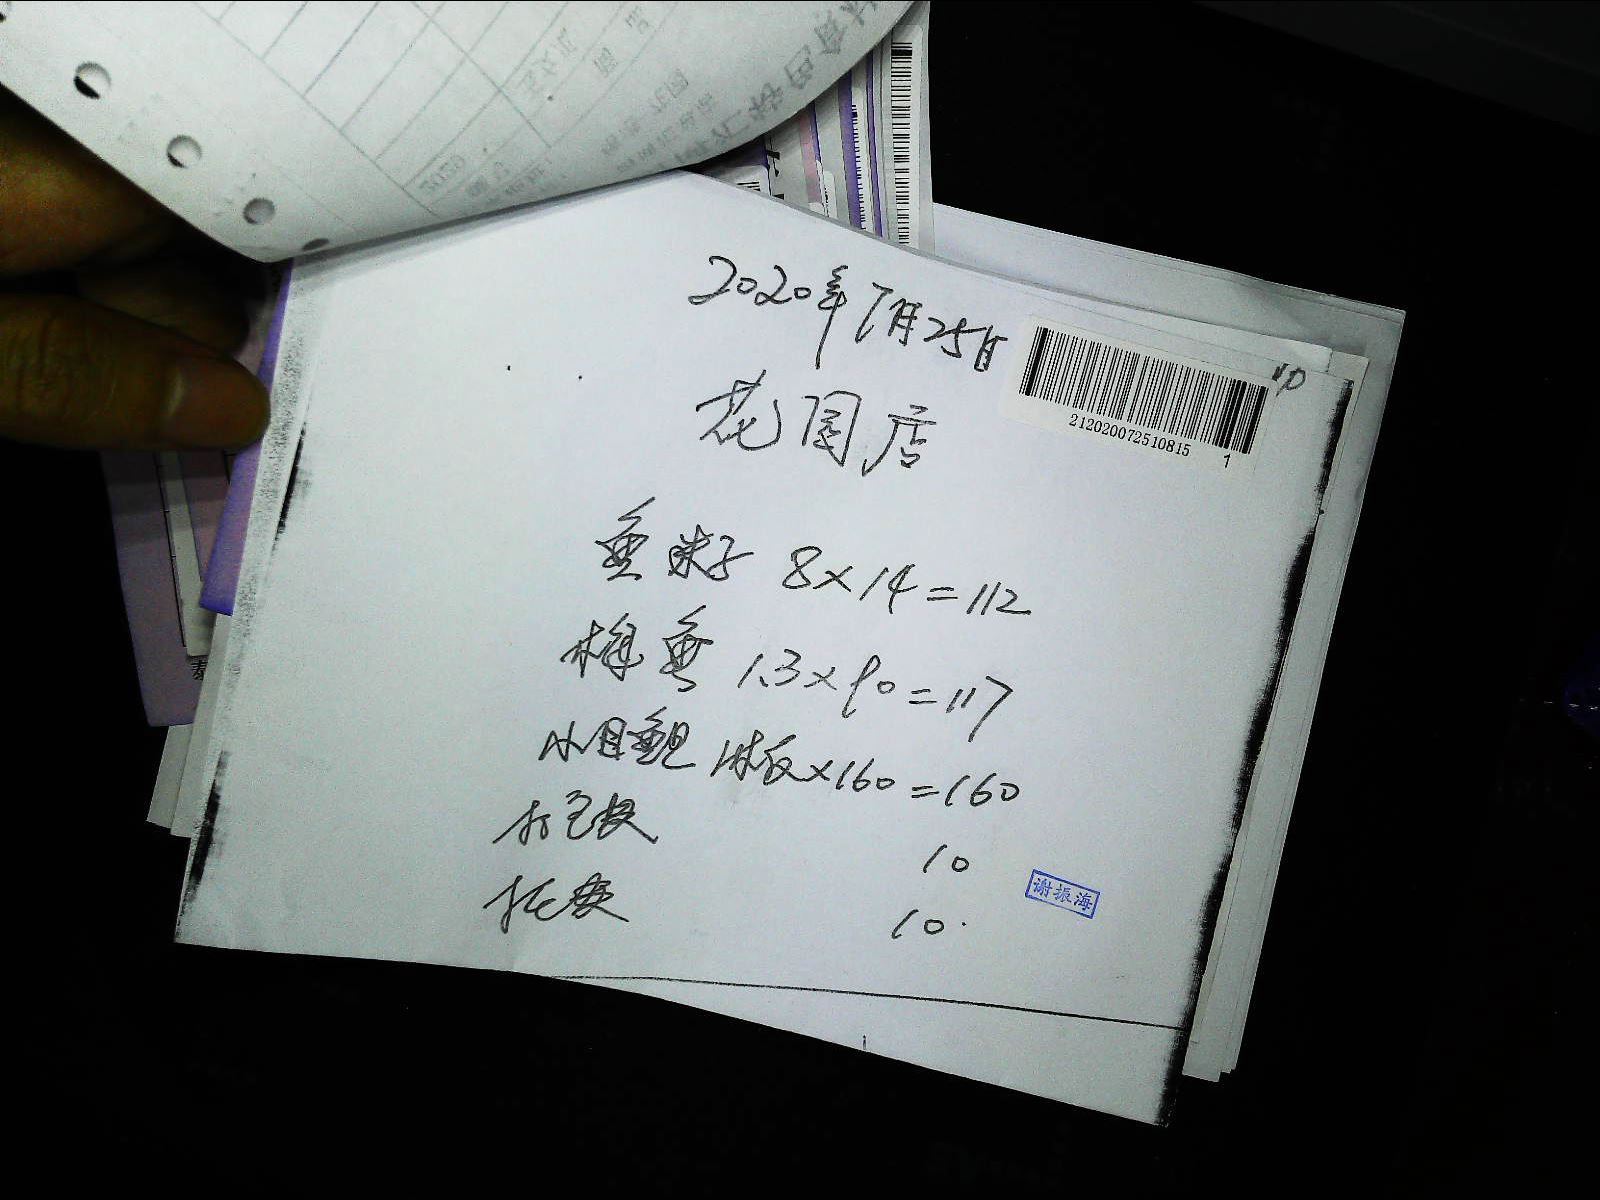 2020年7月25日
花园店
212020072510815 1
鱼球子 8×14=112
梅鱼 1.3×90=117
小目鱼 1板×160=160
打包费 10
托费 10
谢振海